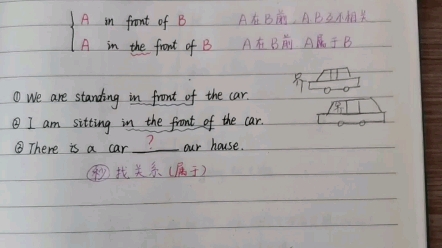 A in front of B A在B前，A B互不相关
A in the front of B A在B前 A属于B
① We are standing in front of the car.
② I am sitting in the front of the car.
③ There is a car ? our house.
找关系（属于）